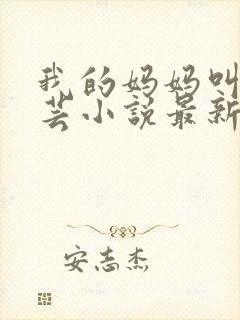 我的妈妈叫
芸小说最新
安志杰